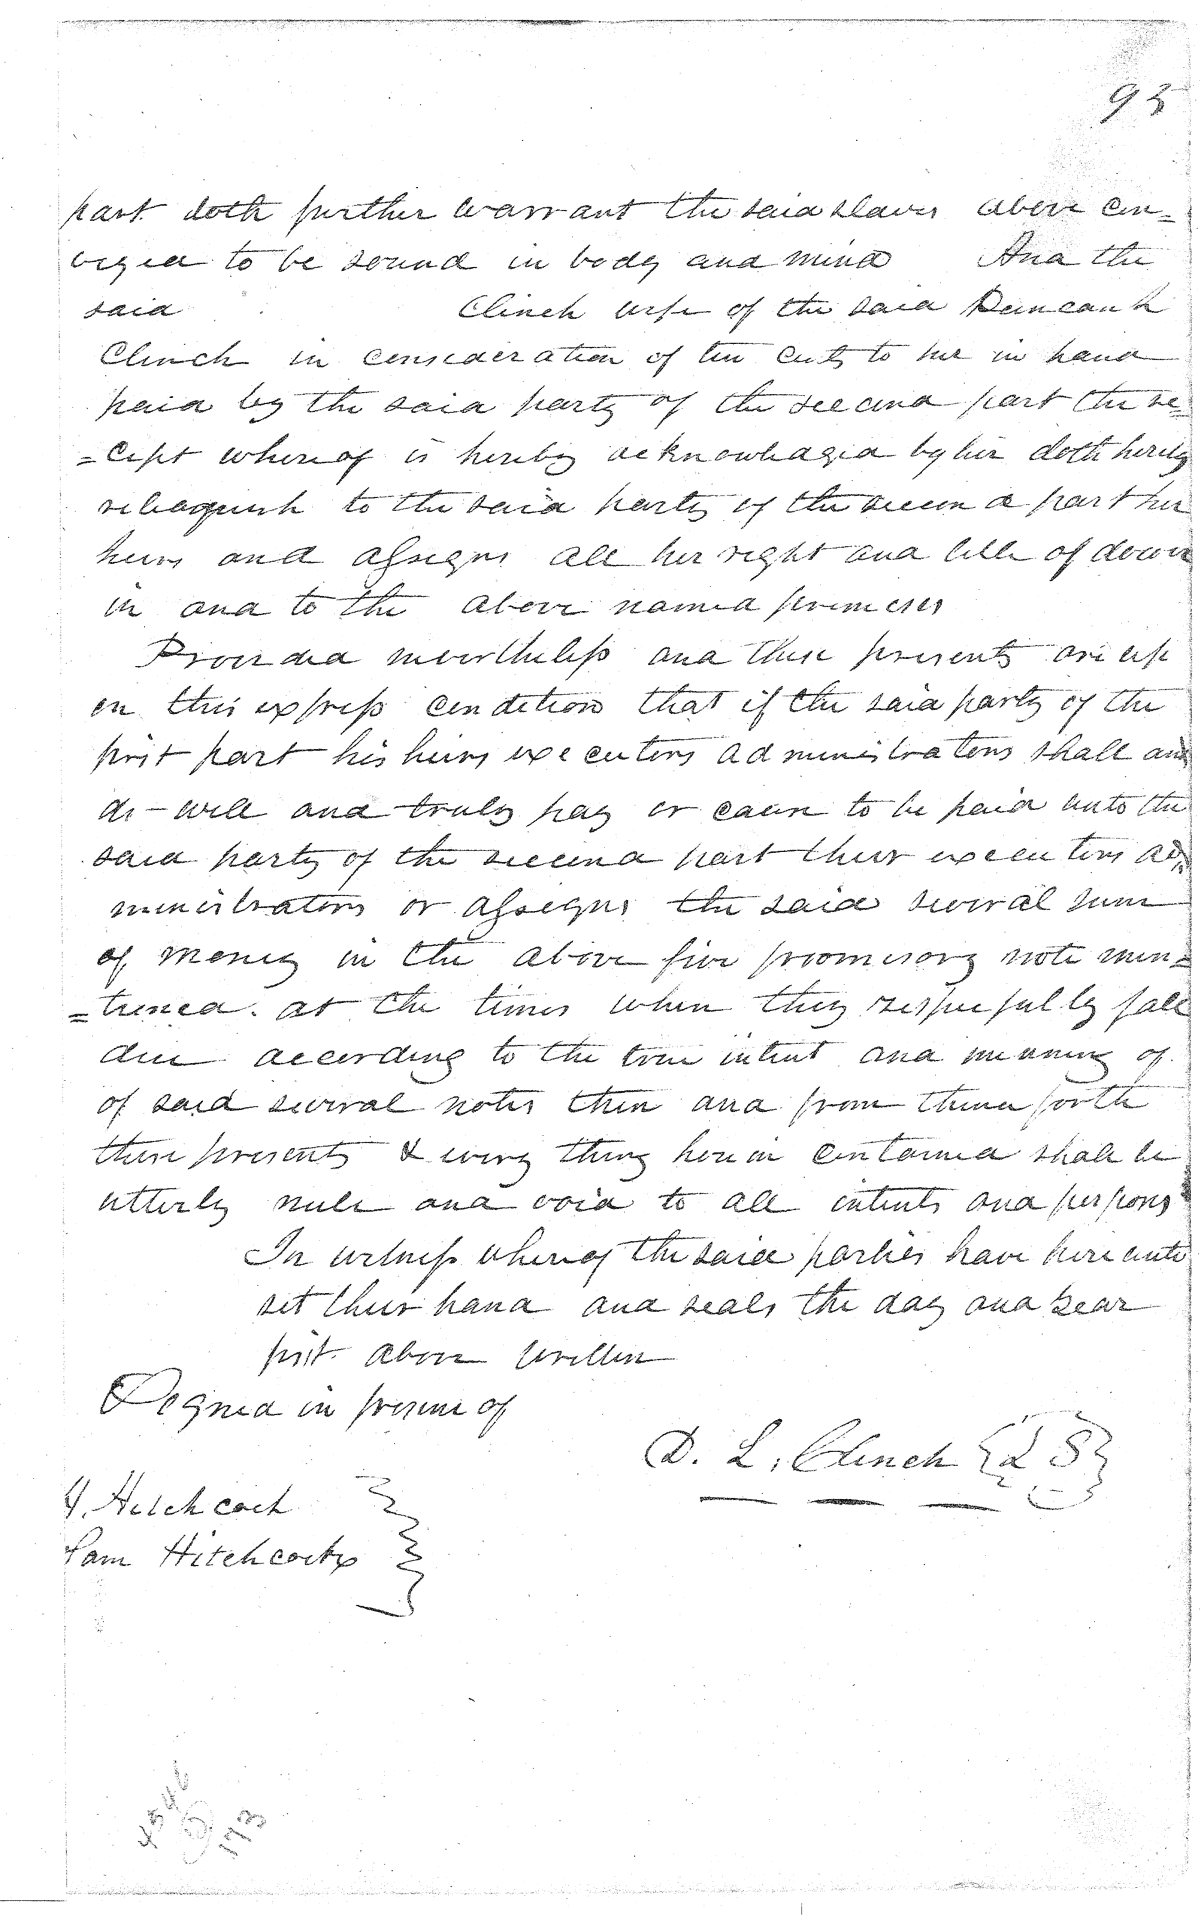 93
part doth further warrant the said slaves above con=
veyed to be sound in body and mind And the
said Clinch wife of the said Duncan L
Clinch in consideration of ten cents to her in hand
paid by the said party of the second part the re=
=ceipt whereof is hereby acknowledged by her doth hereby
relinquish to the said party of the second part her
heirs and assigns all her right and title of dower
in and to the above named premises
Provided nevertheless and these presents are up
on this express condition that if the said party of the
first part his heirs executors administrators shall and
do - well and truly pay or cause to be paid unto the
said party of the second part their executors ad,
ministrators or assigns the said several sum
of money in the above five promisory note men=
=tioned. at the times when they respecfully fall
due according to the true intent and meaning of
of said several notes then and from thence forth
these presents & every thing herein contained shall be
utterly null and void to all intents and purposes
In witness whereof the said parties have hereunto
set their hand and seals the day and year
first above written
Signed in presence of
D. L. Clinch {L S}
Hitchcock
Sam Hitchcock